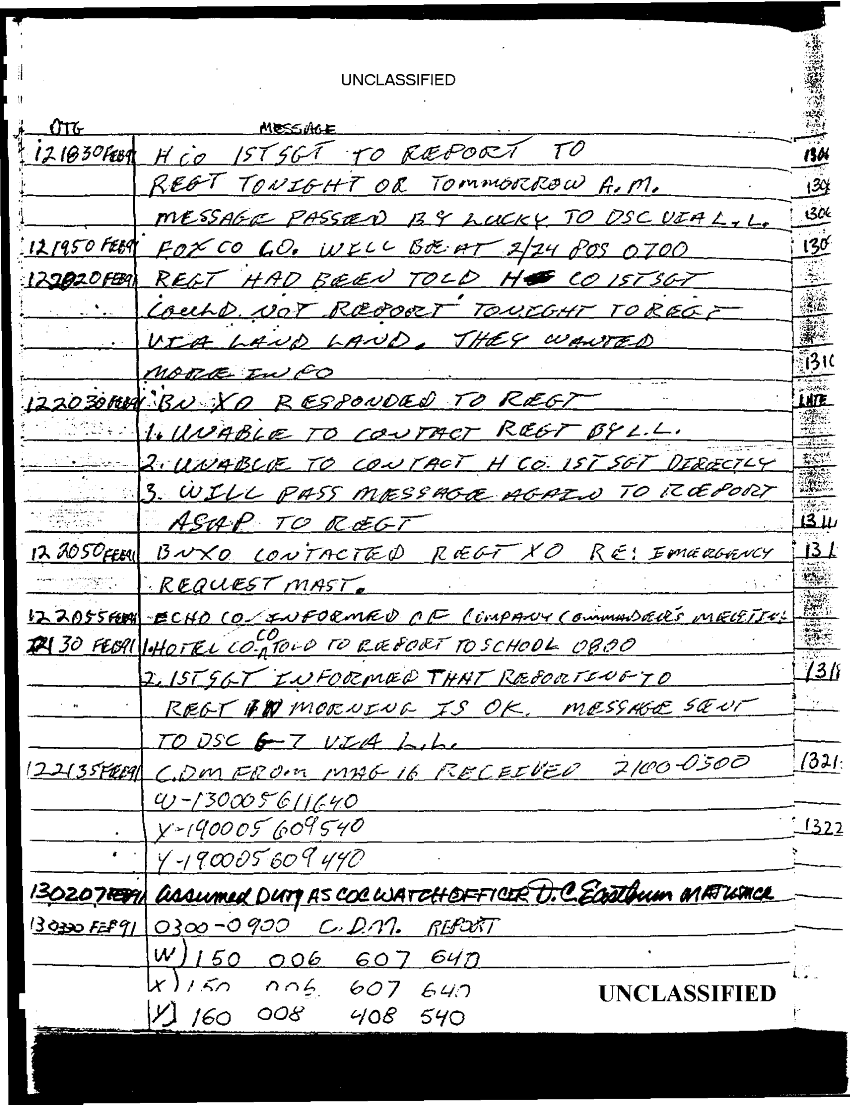 UNCLASSIFIED
DTG MESSAGE
121830FEB91 H CO 1ST SGT TO REPORT TO
REGT TONIGHT OR TOMMORROW A.M.
MESSAGE PASSED BY LUCKY TO DSC VIA L.L.
121950FEB91 FOX CO C.O. WILL BE AT 2/24 POS 0700
122020FEB91 REGT HAD BEEN TOLD H CO 1STSGT
COULD NOT REPORT TONIGHT TO REGT
VIA LAND LAND. THEY WANTED
MORE INFO
122030FEB91 BN XO RESPONDED TO REGT
1. UNABLE TO CONTACT REGT BY L.L.
2. UNABLE TO CONTACT H CO. 1ST SGT DIRECTLY
3. WILL PASS MESSAGE AGAIN TO REPORT
ASAP TO REGT
122050FEB91 BNXO CONTACTED REGT XO RE: EMERGENCY
REQUEST MAST.
122055FEB91 ECHO CO. INFORMED OF COMPANY COMMANDER'S MEETING
2130 FEB91 1. HOTEL CO. CO TOLD TO REPORT TO SCHOOL 0800
2. 1STSGT INFORMED THAT REPORTING TO
REGT IN MORNING IS OK. MESSAGE SENT
TO DSC G-7 VIA L.L.
122135FEB91 C.D.M FROM MAG 16 RECEIVED 2100-0300
W-130005611640
X-190005609540
Y-190005609440
130207FEB91 Assumed DUTY AS COC WATCH OFFICER D.C. Eastburn
130300 FEB91 0300-0900 C.D.M. REPORT
W) 150 006 607 640
X) 150 006 607 640
UNCLASSIFIED
Y) 160 008 408 540
1306
130
1306
130
1310
LATE
131
131
1321
1322